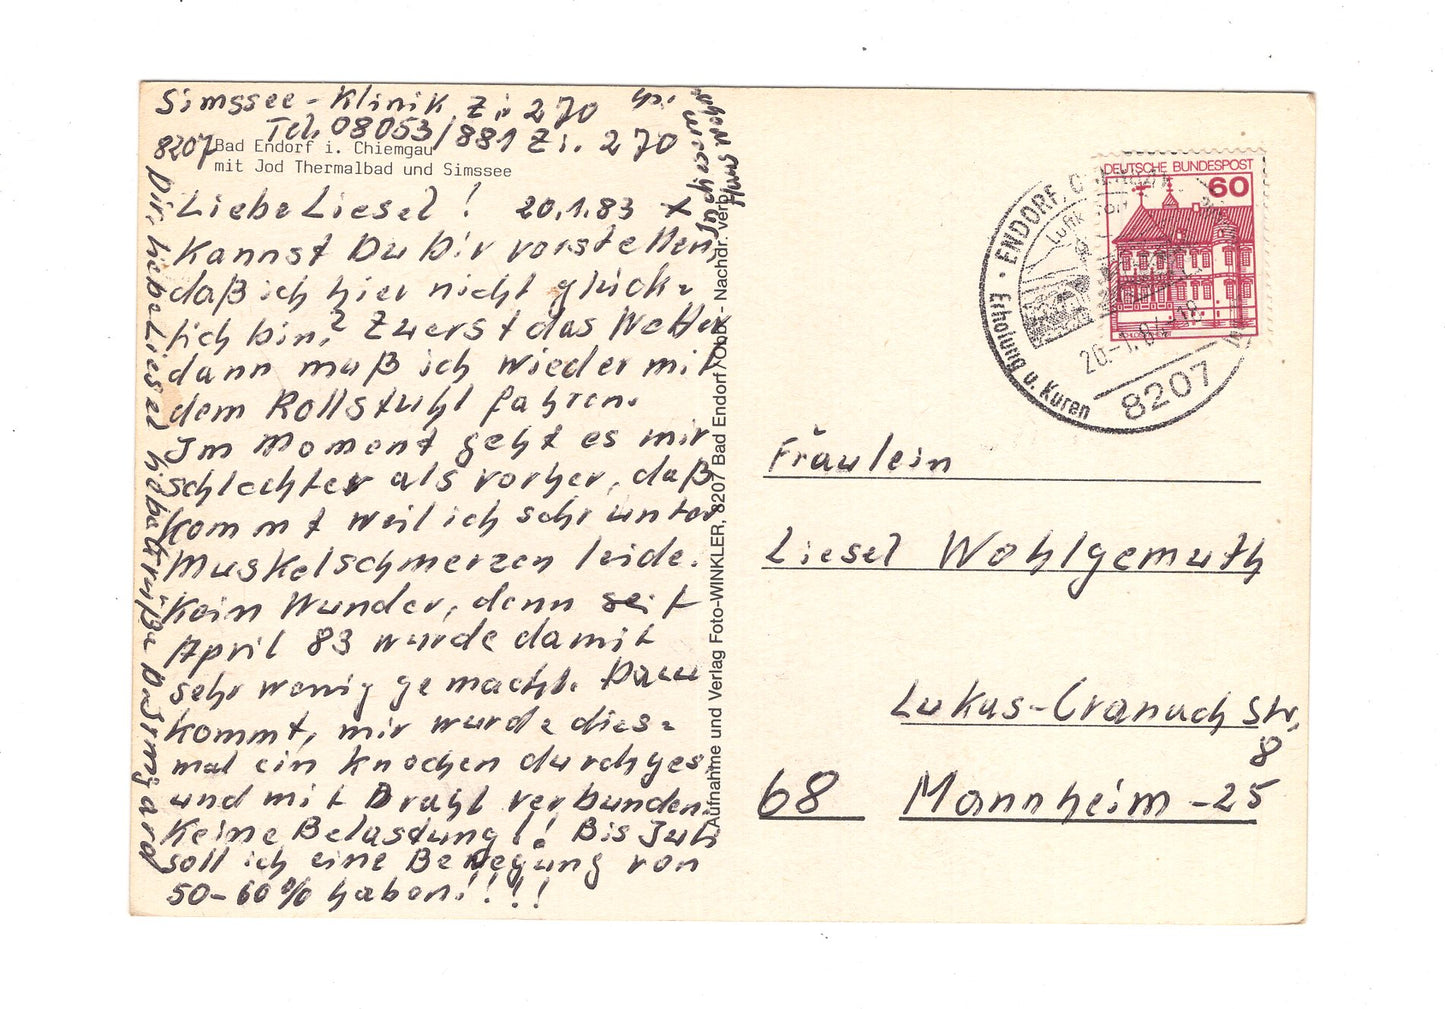 Simssee-Klinik Zi. 270
Tel. 08053/881 Zi. 270
8207 Bad Endorf i. Chiemgau
mit Jod Thermalbad und Simssee
Liebe Liesel! 20.1.83 x
Kannst Du Dir vorstellen,
daß ich hier nicht glück=
lich bin? Zuerst das Wetter
dann muß ich wieder mit
dem Rollstuhl fahren.
Im Moment geht es mir
schlechter als vorher, daß
kommt weil ich sehr unter
Muskelschmerzen leide.
Kein Wunder, denn seit
April 83 wurde damit
sehr wenig gemacht. Dazu
kommt, mir wurde dies=
mal ein Knochen durchges.
und mit Draht verbunden.
Keine Belastung!! Bis Juli
soll ich eine Bewegung von
50-60% haben!!!!
Dir liebe Liesel liebe Grüße D. Irmgard
In diesem
Haus wohn
Aufnahme und Verlag Foto-WINKLER, 8207 Bad Endorf/Obb. - Nachdr. verb.
DEUTSCHE BUNDESPOST
60
ENDORF, O
Luftk
20.-1.84-18
8207
Erholung u. Kuren
Fräulein
Liesel Wohlgemuth
Lukas-Cranach Str.
8
68 Mannheim-25